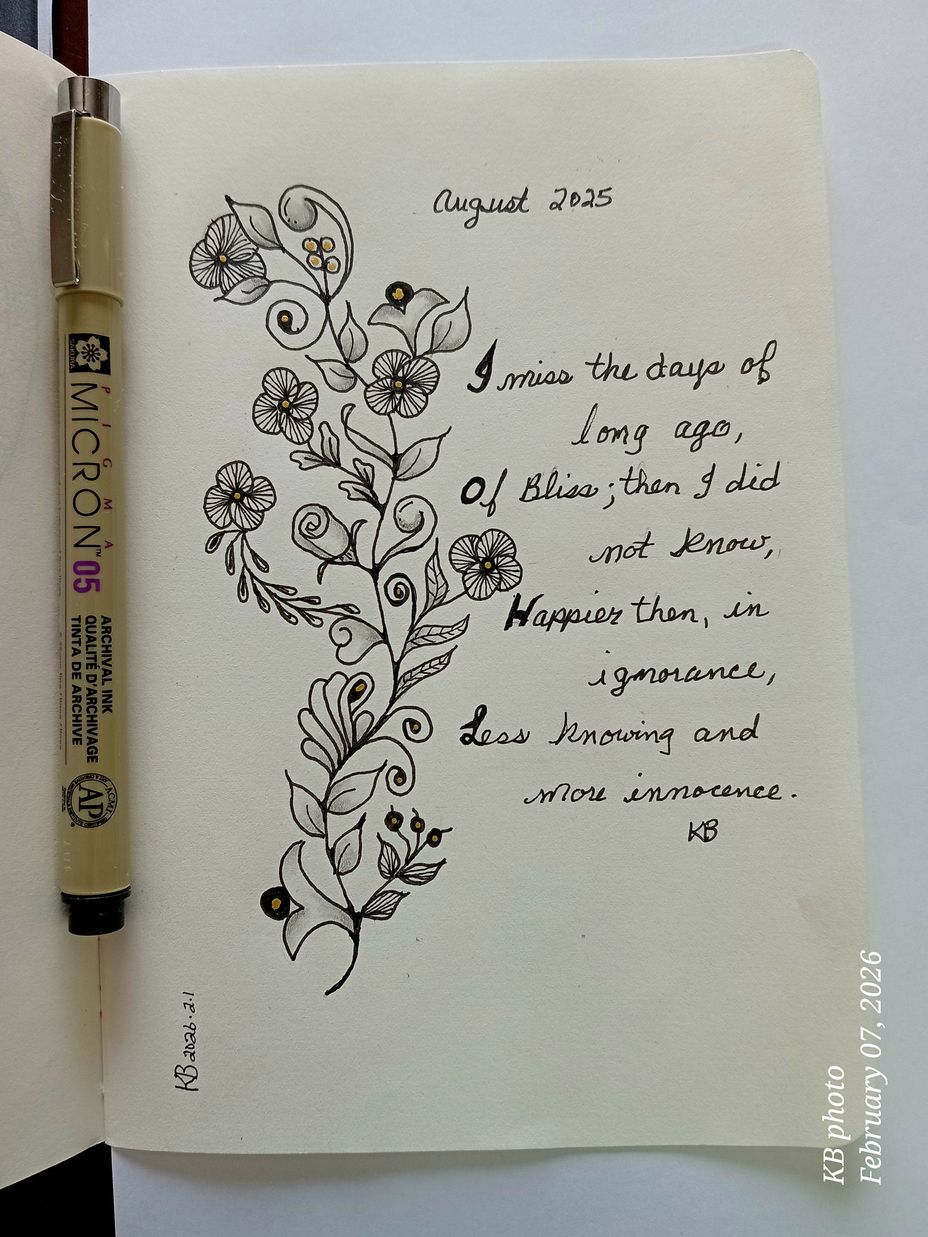 August 2025
I miss the days of
long ago,
Of Bliss; then I did
not know,
Happier then, in
ignorance,
Less knowing and
more innocence.
KB
KB 2026.2.1
PIGMA
MICRON™ 05
ARCHIVAL INK
QUALITÉ D'ARCHIVAGE
TINTA DE ARCHIVE
ACMI
AP
KB photo
February 07, 2026